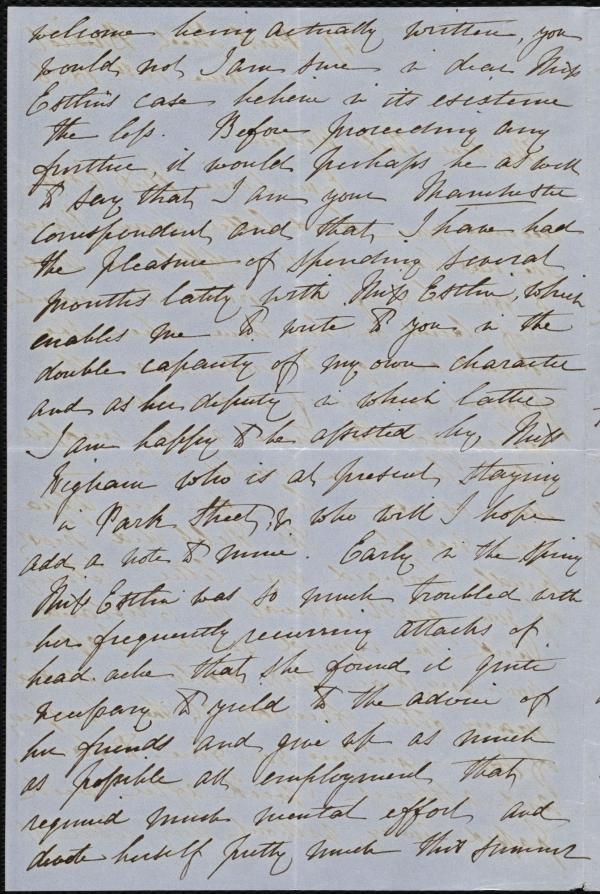 welcome being actually written, you
would not I am sure in dear Miss
Estlin's case believe in its existence
the less. Before proceeding any
further, it would perhaps be as well
to say that I am your Manchester
correspondent and that I have had
the pleasure of spending several
months lately with Miss Estlin, which
enables me to write to you in the
double capacity of my own character
and as her deputy in which latter
I am happy to be assisted by Miss
Wigham who is at present staying
in Park Street, & who will I hope
add a note to mine. Early in the Spring
Miss Estlin was so much troubled with
her frequently recurring attacks of
head-ache that she found it quite
necessary to yield to the advice of
her friends and give up as much
as possible all employment that
required much mental effort and
devote herself pretty much this summer